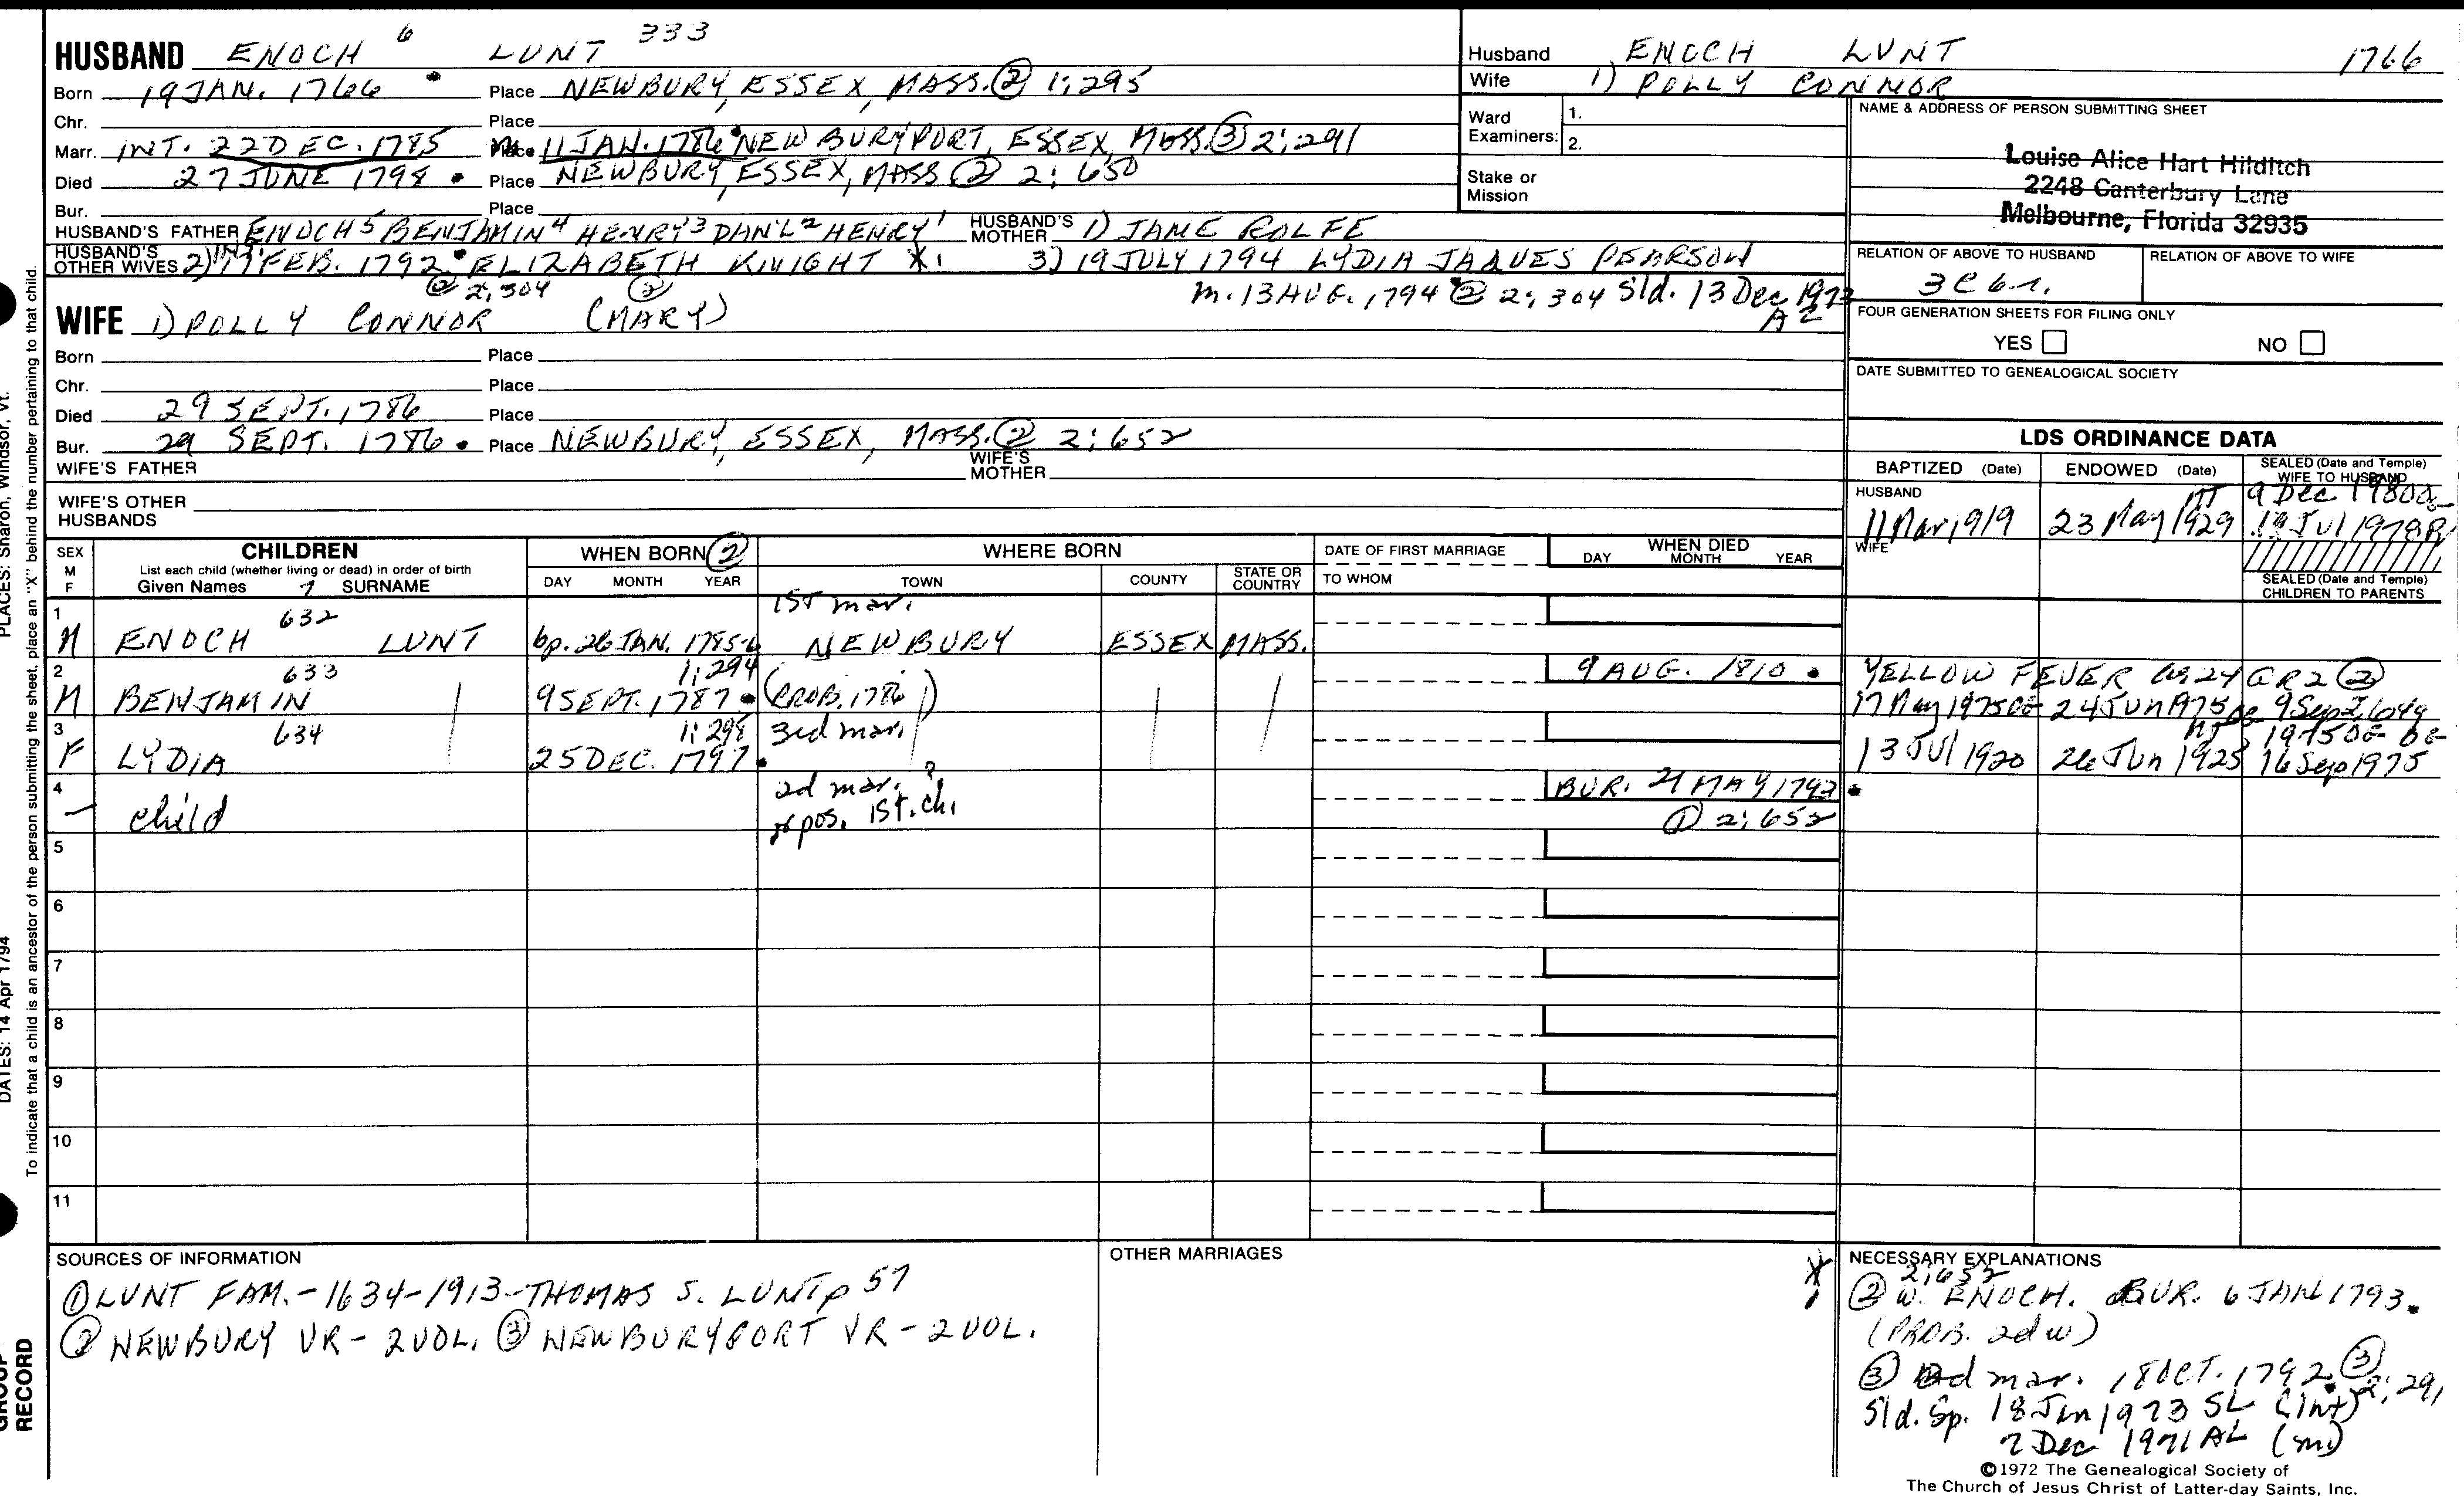 HUSBAND ENOCH 6 LUNT 333
Born 19 JAN. 1766 Place NEWBURY, ESSEX, MASS. ② 1:295
Chr. Place
Marr. INT. 22 DEC. 1785 m. 11 JAN. 1786 NEWBURYPORT, ESSEX, MASS. ③ 2:291
Died 27 JUNE 1798 Place NEWBURY, ESSEX, MASS ② 2:650
Bur. Place
HUSBAND'S FATHER ENOCH 5 BENJAMIN 4 HENRY 3 DAN'L 2 HENRY 1 HUSBAND'S MOTHER 1) JANE ROLFE
HUSBAND'S OTHER WIVES 2) INT. 17 FEB. 1792 ELIZABETH KNIGHT X 3) 19 JULY 1794 LYDIA JAQUES PEARSON
② 2:304 ② m. 13 AUG. 1794 ② 2:304 Sld. 13 Dec 1973
AZ
WIFE 1) POLLY CONNOR (MARY)
Born Place
Chr. Place
Died 29 SEPT. 1786 Place
Bur. 29 SEPT. 1786 Place NEWBURY, ESSEX, MASS. ② 2:652
WIFE'S FATHER WIFE'S MOTHER
WIFE'S OTHER HUSBANDS
Husband ENOCH LUNT 1766
Wife 1) POLLY CONNOR
Ward Examiners: 1.
2.
Stake or Mission
NAME & ADDRESS OF PERSON SUBMITTING SHEET
Louise Alice Hart Hilditch
2248 Canterbury Lane
Melbourne, Florida 32935
RELATION OF ABOVE TO HUSBAND RELATION OF ABOVE TO WIFE
3C 6r.
FOUR GENERATION SHEETS FOR FILING ONLY
YES NO
DATE SUBMITTED TO GENEALOGICAL SOCIETY
LDS ORDINANCE DATA
BAPTIZED (Date) ENDOWED (Date) SEALED (Date and Temple) WIFE TO HUSBAND
HUSBAND 9 Dec 1980
11 Mar 1919 23 May 1929 Jul 1978
WIFE
SEALED (Date and Temple) CHILDREN TO PARENTS
SEX M F CHILDREN WHEN BORN ② WHERE BORN DATE OF FIRST MARRIAGE WHEN DIED
List each child (whether living or dead) in order of birth
Given Names 7 SURNAME DAY MONTH YEAR TOWN COUNTY STATE OR COUNTRY TO WHOM DAY MONTH YEAR
1 632 1st mar.
M ENOCH LUNT bp. 26 JAN. 1785-6 NEWBURY ESSEX MASS.
2 633 1:294 9 AUG. 1810 YELLOW FEVER 24 GR2 ②
M BENJAMIN 9 SEPT. 1787 (PROB. 1786) 17 May 1975 24 Jun 1975 9 Sep 2:649
3 634 1:298 3rd mar. 1975
F LYDIA 25 DEC. 1797 13 Jul 1920 26 Jun 1925 16 Sep 1975
4 2d mar.? BUR. 21 MAY 1792
– child or pos. 1st. ch. ① 2:652
5
6
7
8
9
10
11
SOURCES OF INFORMATION
① LUNT FAM. - 1634-1913 - THOMAS S. LUNT p 57
② NEWBURY VR - 2 VOL. ③ NEWBURYPORT VR - 2 VOL.
OTHER MARRIAGES
NECESSARY EXPLANATIONS
2:652
② W. ENOCH. BUR. 6 JAN 1793.
(PROB. 2d w)
③ 2d mar. 18 OCT. 1792 ③ 2:291
Sld. Sp. 18 Jan 1973 SL (Int)
7 Dec 1971 AL (m)
©1972 The Genealogical Society of
The Church of Jesus Christ of Latter-day Saints, Inc.
PLACES: Sharon, Windsor, Vt.
DATES: 14 Apr 1794
To indicate that a child is an ancestor of the person submitting the sheet, place an "X" behind the number pertaining to that child.
GROUP
RECORD